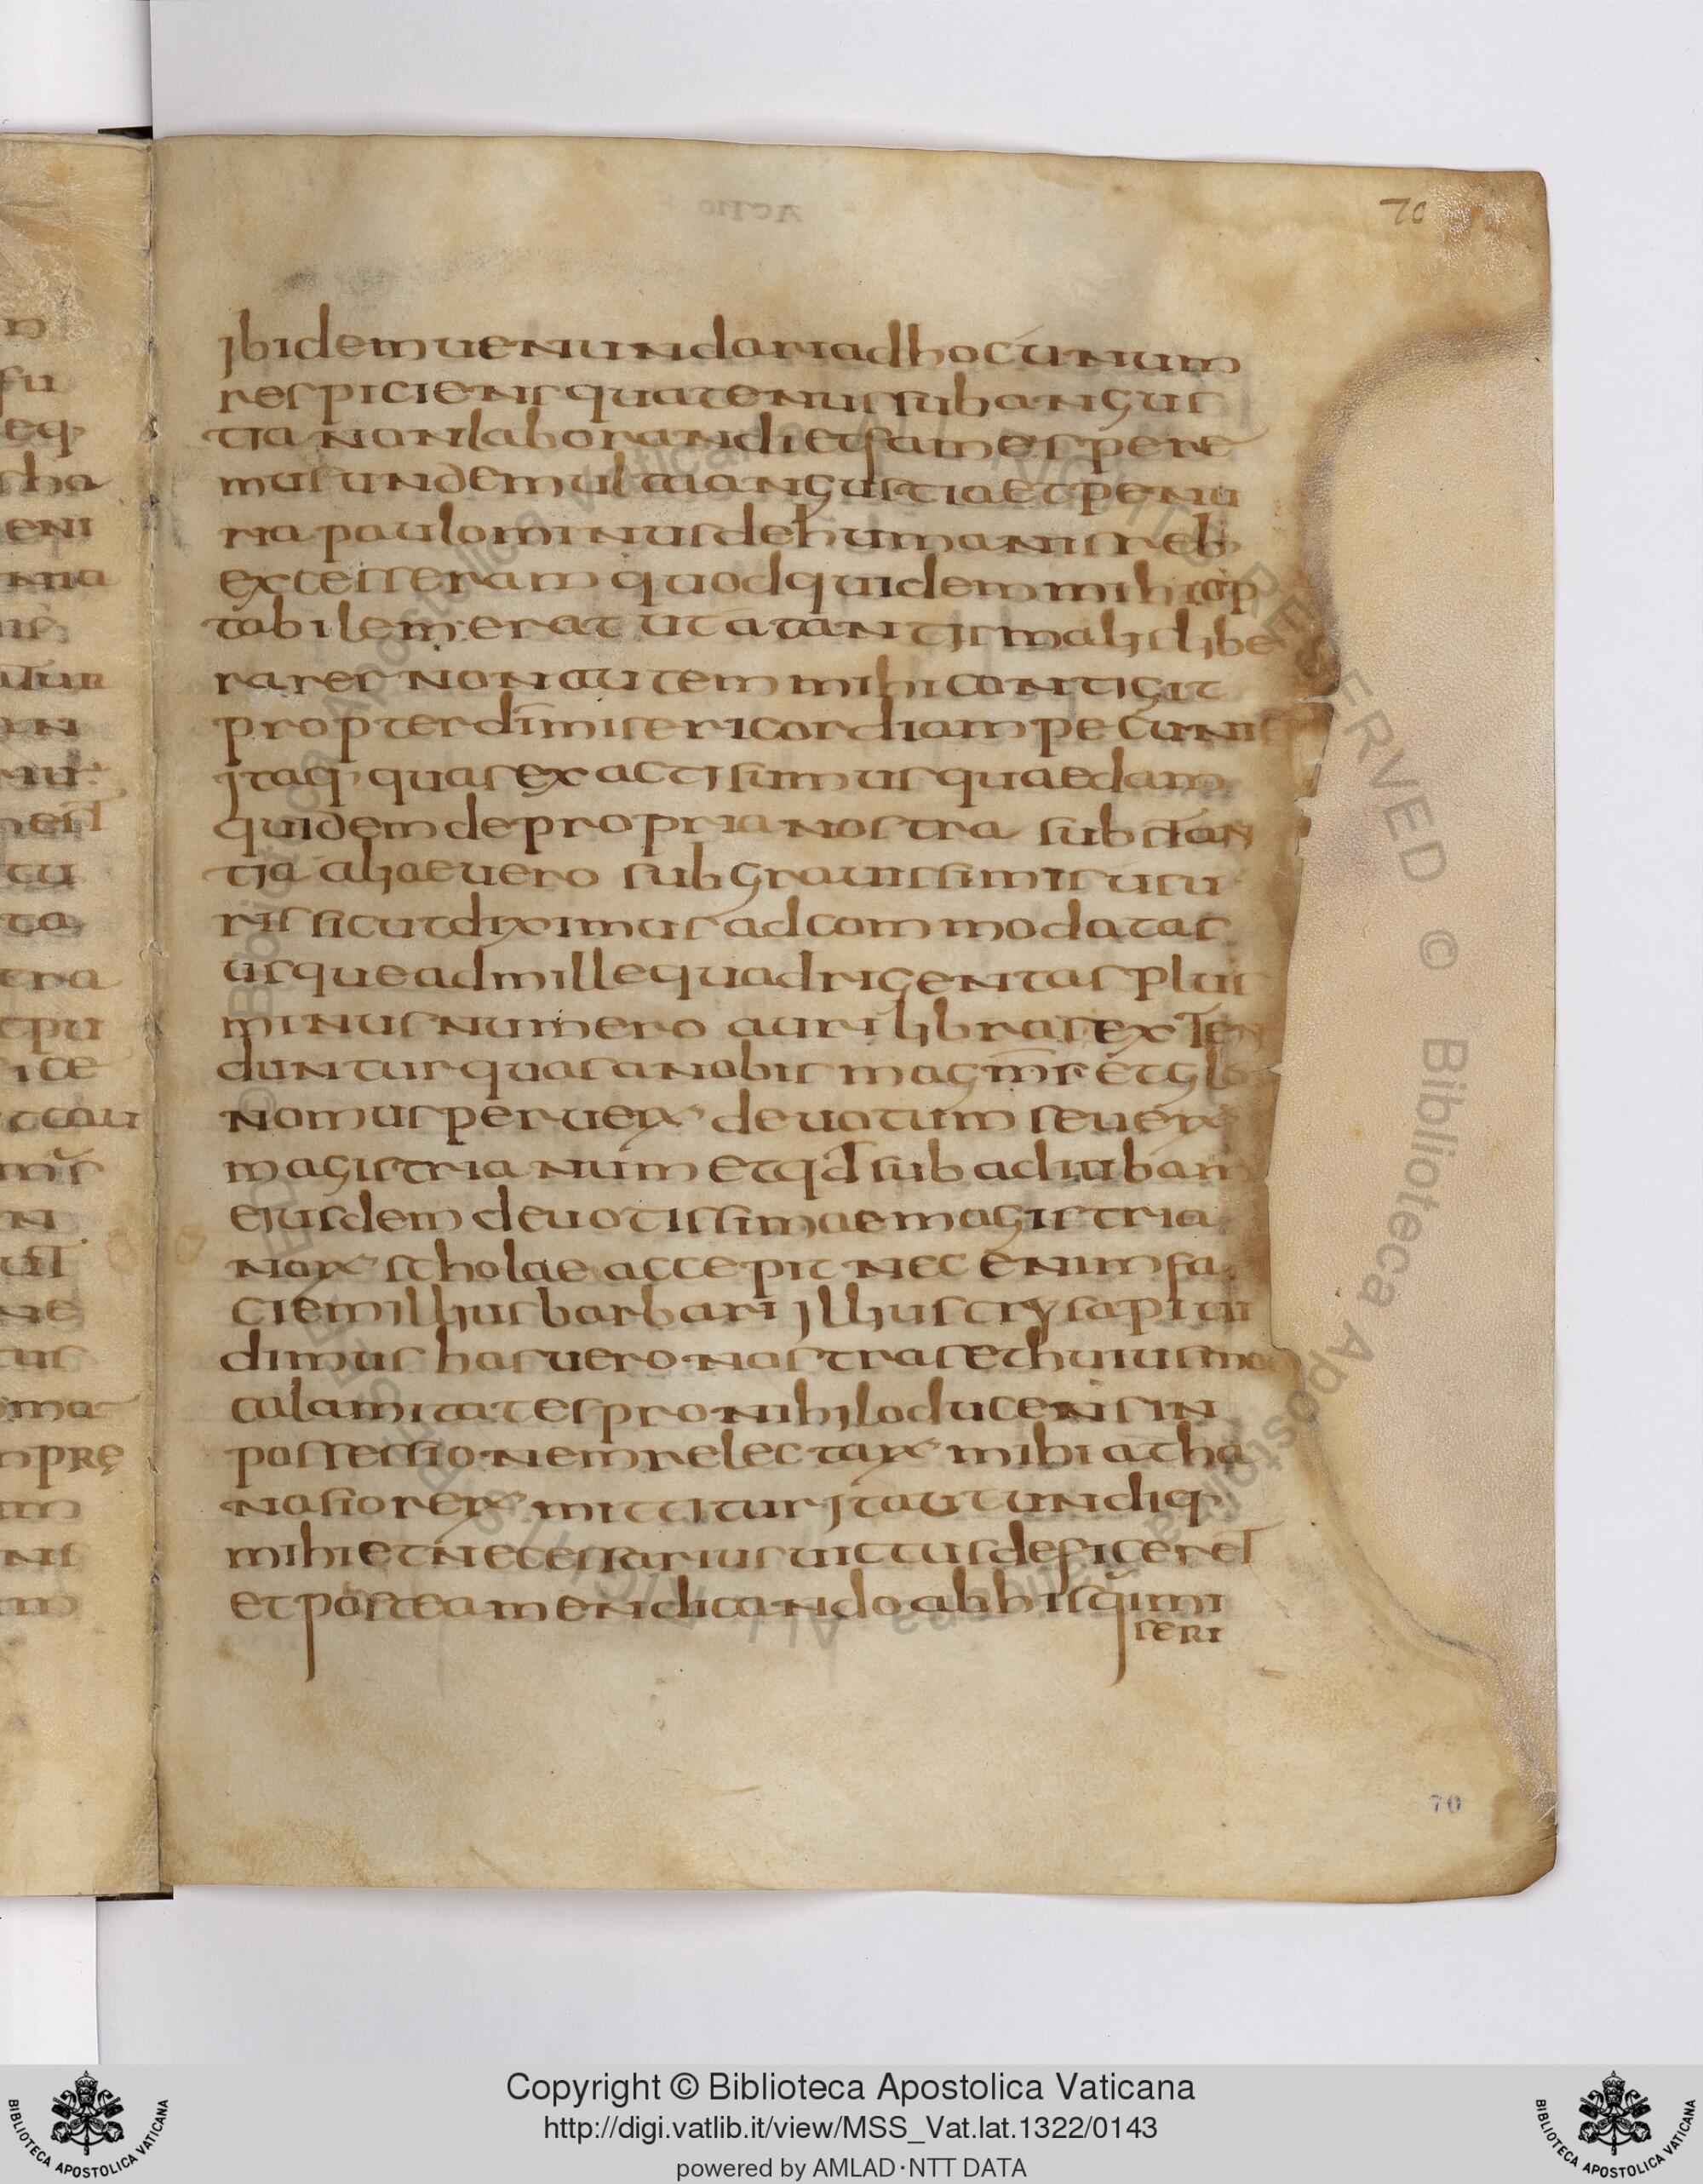 70
ibidem uenundari ad hoc unum
respiciens quatenus sub angus
tia non laborandi et fames pere
mus unde multa angustia et penu
ria paulo minus de humanis reb;
excesseram quod quidem mihi op
tabilem erat ut a tantis malis libe
rarer non autem mihi contigit
propter dī misericordiam pecunias
itaq; quas exacti sumus quaedam
quidem de propria nostra substan
tia aliae uero sub grauissimis usu
ris sicut diximus adcommodatas
usque ad mille quadrigentas plus
minus numero auri libras exten
duntur quas a nobis magnī̄f et
nomus per uerƺ deuotum seuerƺ
magistrianum et qd̄ sub adiuban
eiusdem deuotissimae magistria
norƺ scholae accepit nec enim fa
ciem illius barbari illius crysapi ui
dimus has uero nostras et huiusmodi
calamitates pro nihilo ducens in
possessionem relectarƺ mihi atha
nasiorerƺ mittitur ita ut undiq;
mihi et necessarius uictus deficeret
et postea mendicando ab his q̄ imi
seri
70
Copyright © Biblioteca Apostolica Vaticana
http://digi.vatlib.it/view/MSS_Vat.lat.1322/0143
powered by AMLAD·NTT DATA
BIBLIOTECA APOSTOLICA VATICANA
BIBLIOTECA APOSTOLICA VATICANA